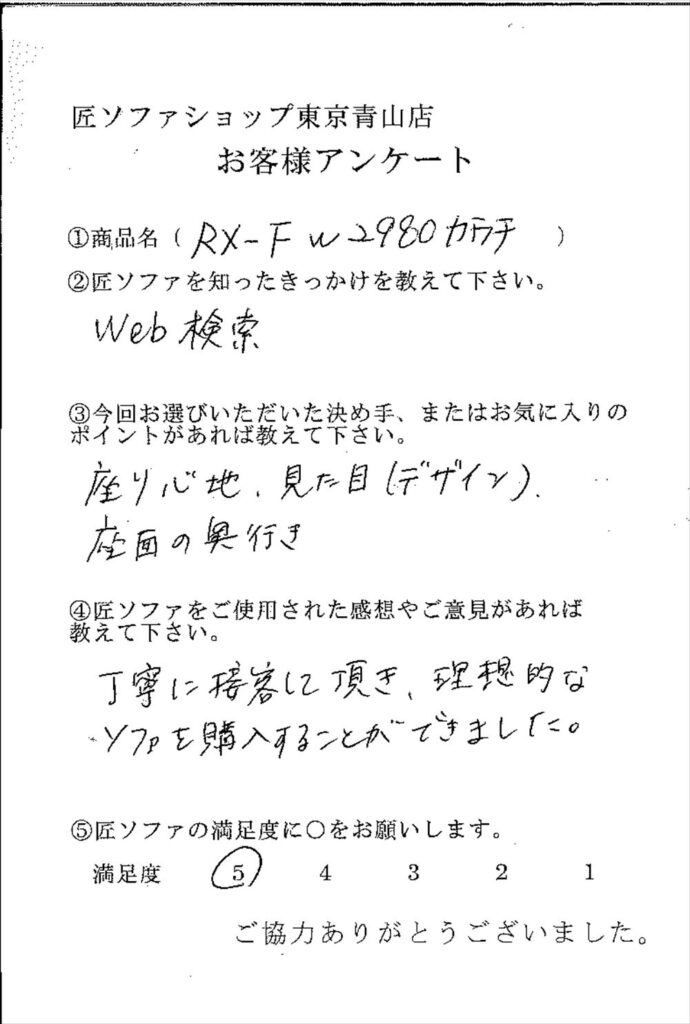 匠ソファショップ東京青山店
お客様アンケート
①商品名（ RX-F W2980カウチ ）
②匠ソファを知ったきっかけを教えて下さい。
Web検索
③今回お選びいただいた決め手、またはお気に入りの
ポイントがあれば教えて下さい。
座り心地、見た目(デザイン)、
座面の奥行き
④匠ソファをご使用された感想やご意見があれば
教えて下さい。
丁寧に接客して頂き、理想的な
ソファを購入することができました。
⑤匠ソファの満足度に○をお願いします。
満足度 5 4 3 2 1
ご協力ありがとうございました。